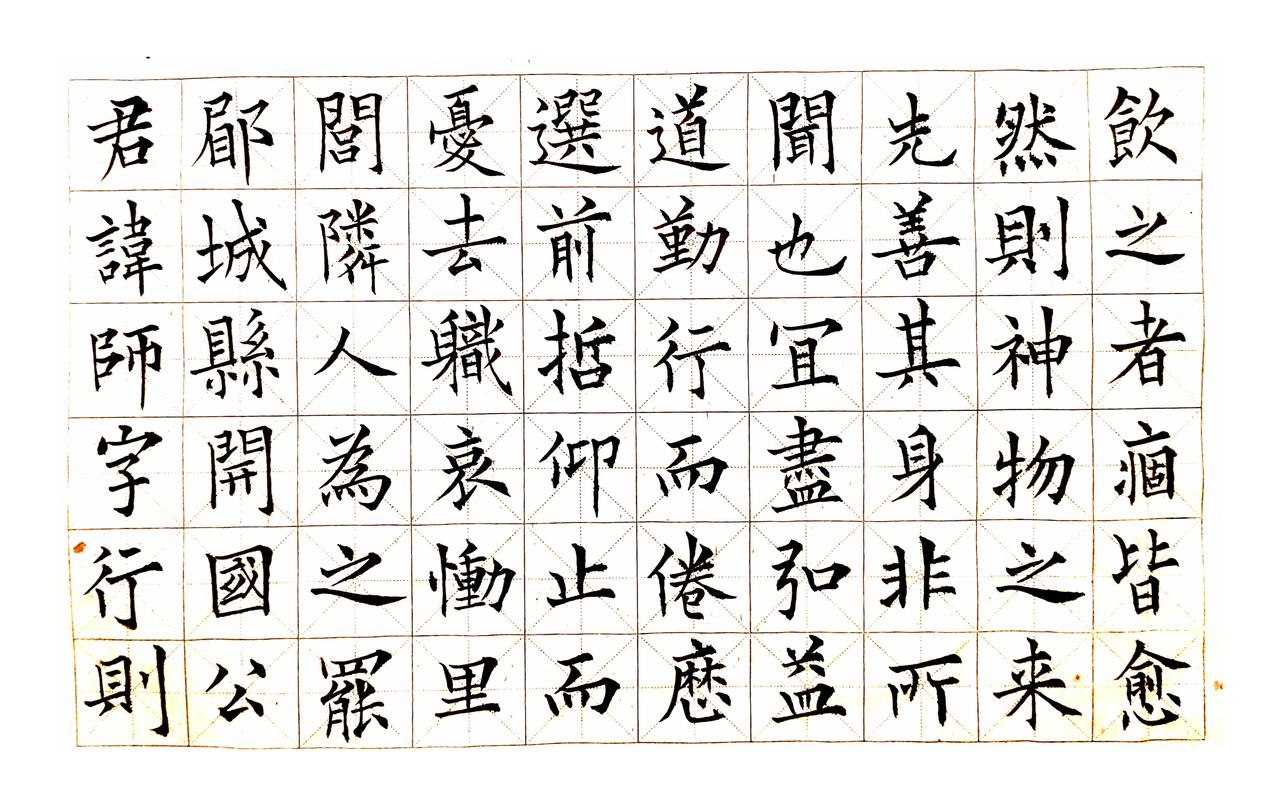 飲之者痼皆愈
然則神物之来
先善其身非所
聞也冝盡弘益
道勤行而倦歷
選前哲仰止而
憂去職哀慟里
閭隣人為之罷
郿城縣開國公
君諱師字行則